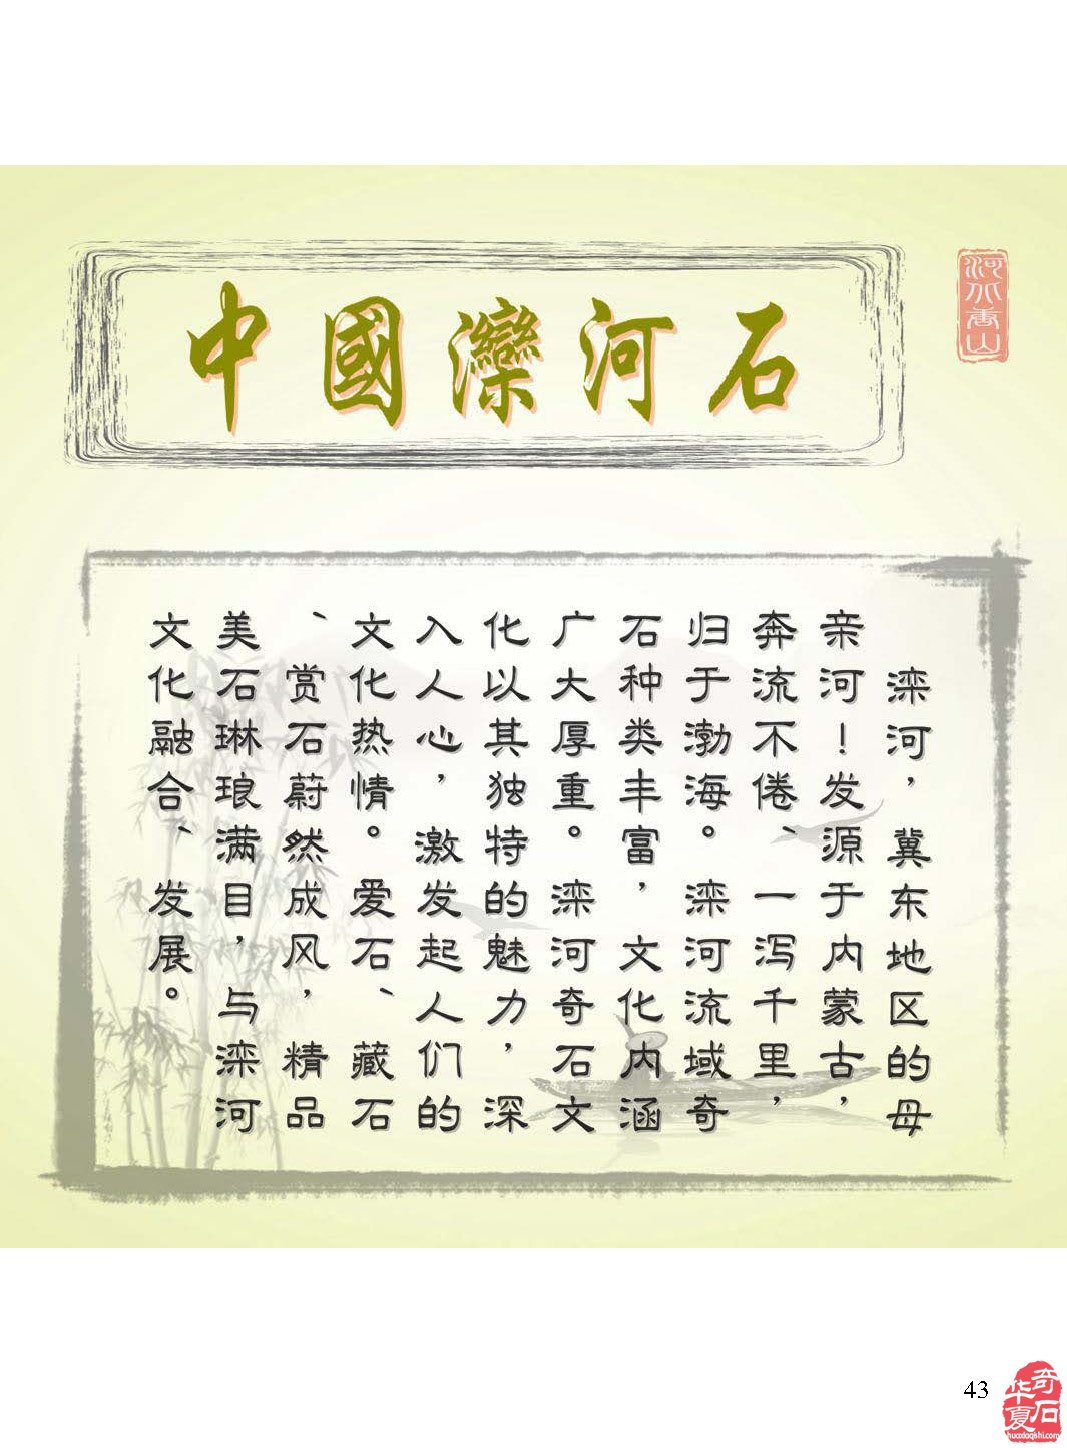 中國灤河石
河北香山
滦河，冀东地区的母
亲河！发源于内蒙古，
奔流不倦、一泻千里，
归于渤海。滦河流域奇
石种类丰富，文化内涵
广大厚重。滦河奇石文
化以其独特的魅力，深
入人心，激发起人们的
文化热情。爱石、藏石
、赏石蔚然成风，精品
美石琳琅满目，与滦河
文化融合、发展。
43
华夏奇石
huaxiaqishi.com